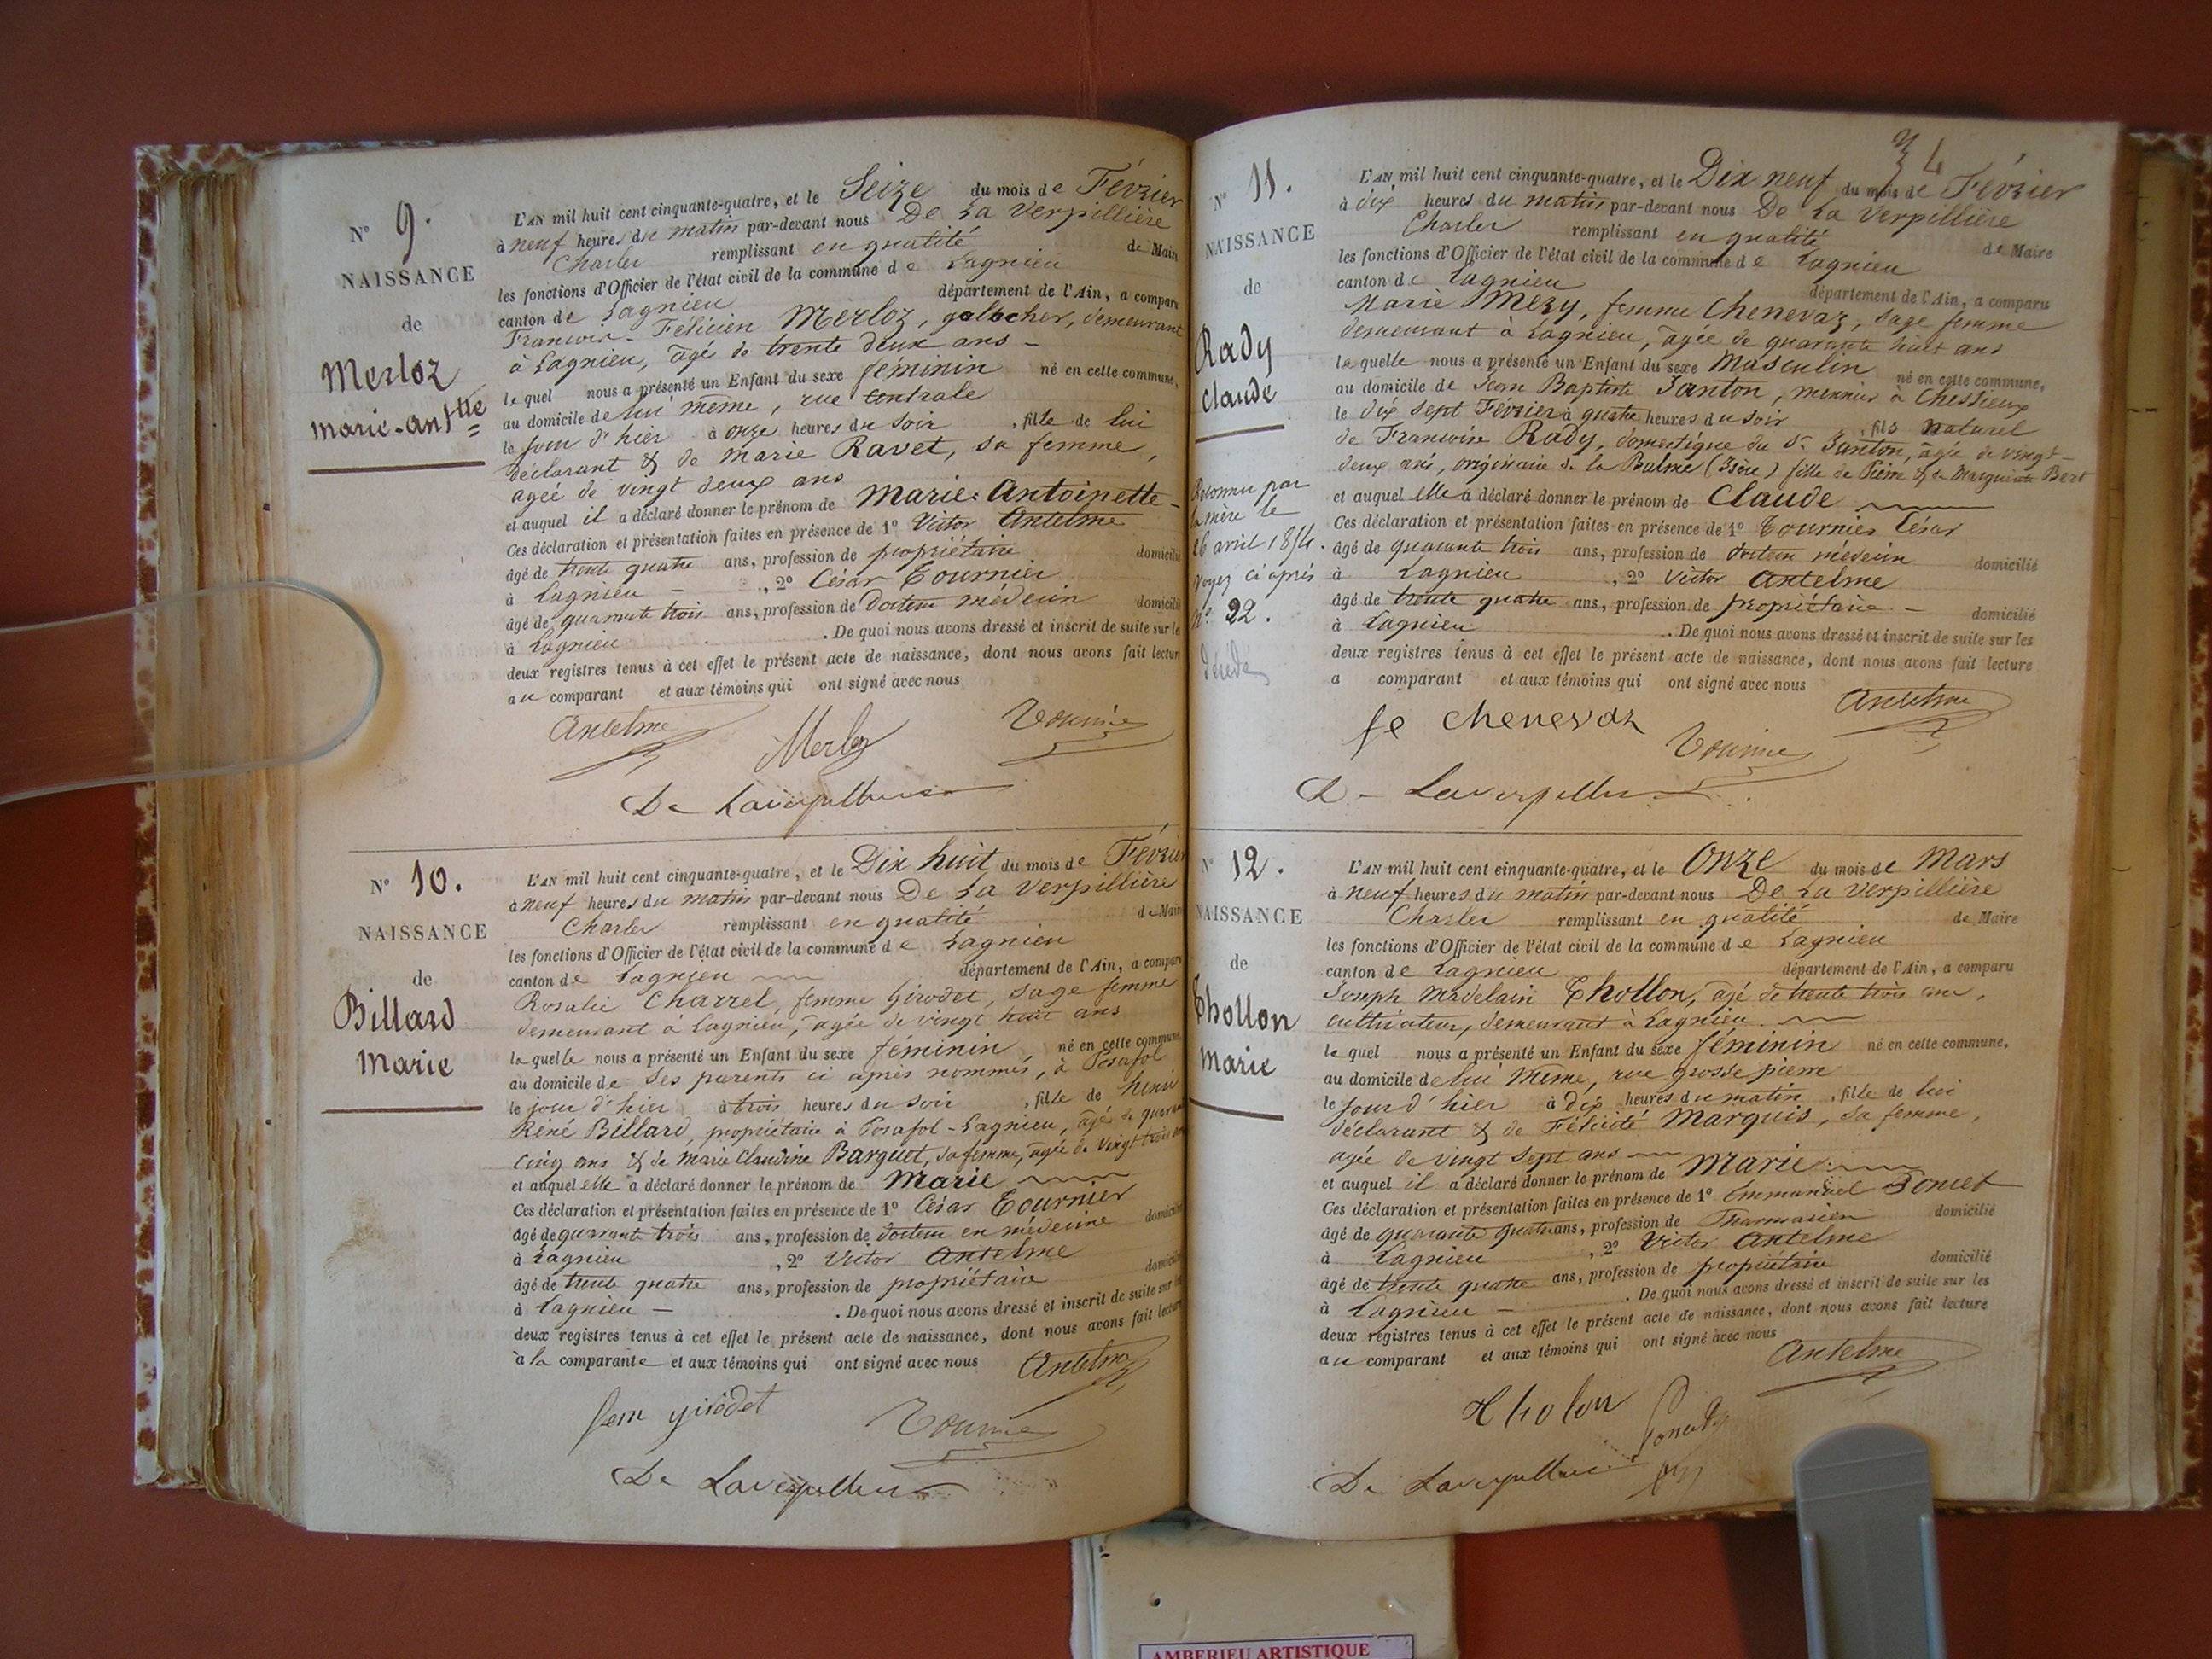 N° 9.
NAISSANCE
de
Merloz
marie-antte
L'AN mil huit cent cinquante-quatre, et le Seize du mois de Février
à neuf heures du matin par-devant nous De La Verpillière
Charles remplissant en qualité de Maire
les fonctions d'Officier de l'état civil de la commune de Lagnieu
canton de Lagnieu département de l'Ain, a comparu
François-Félicien Merloz, galocher, demeurant
à Lagnieu, âgé de trente deux ans -
lequel nous a présenté un Enfant du sexe féminin né en cette commune,
au domicile de lui même, rue Centrale
le jour d'hier à onze heures du soir, fille de lui
déclarant & de Marie Ravet, sa femme,
agée de vingt deux ans
et auquel il a déclaré donner le prénom de Marie-Antoinette-
Ces déclaration et présentation faites en présence de 1° Victor Antelme
âgé de trente quatre ans, profession de propriétaire domicilié
à Lagnieu - , 2° César Tournier
âgé de quarante trois ans, profession de docteur médecin domicilié
à Lagnieu . De quoi nous avons dressé et inscrit de suite sur le
deux registres tenus à cet effet le présent acte de naissance, dont nous avons fait lecture
au comparant et aux témoins qui ont signé avec nous
Antelme Merloz Tournier
De Laverpilliere
N° 10.
NAISSANCE
de
Billard
Marie
L'AN mil huit cent cinquante-quatre, et le Dix huit du mois de Février
à neuf heures du matin par-devant nous De La Verpillière
Charles remplissant en qualité de Maire
les fonctions d'Officier de l'état civil de la commune de Lagnieu
canton de Lagnieu département de l'Ain, a comparu
Rosalie Charrel, femme Girodet, sage femme
demeurant à Lagnieu, âgée de vingt huit ans
laquelle nous a présenté un Enfant du sexe féminin né en cette commune
au domicile de ses parents ci après nommés, à Posafol
le jour d'hier à trois heures du soir, fille de henri
Réné Billard, propriétaire à Posafol-Lagnieu, âgé de quarante
cinq ans & de Marie Claudine Barquet, sa femme, agée de vingt trois ans
et auquel elle a déclaré donner le prénom de Marie
Ces déclaration et présentation faites en présence de 1° César Tournier
âgé de quarante trois ans, profession de docteur en médecine domicilié
à Lagnieu , 2° Victor Antelme
âgé de trente quatre ans, profession de propriétaire domicilié
à Lagnieu - . De quoi nous avons dressé et inscrit de suite sur les
deux registres tenus à cet effet le présent acte de naissance, dont nous avons fait lecture
à la comparante et aux témoins qui ont signé avec nous Antelme
fem girodet Tournier
De Laverpilliere
34
N° 11.
NAISSANCE
de
Rady
Claude
Reconnu par
la mère le
26 avril 1854.
Voyez ci après
N° 22.
décédé
L'AN mil huit cent cinquante-quatre, et le Dix neuf du mois de Février
à dix heures du matin par-devant nous De La Verpillière
Charles remplissant en qualité de Maire
les fonctions d'Officier de l'état civil de la commune de Lagnieu
canton de Lagnieu département de l'Ain, a comparu
Marie Mezy, femme Chenevaz, sage femme
demeurant à Lagnieu, âgée de quarante huit ans
laquelle nous a présenté un Enfant du sexe Masculin né en cette commune,
au domicile de Jean Baptiste Santon, meunier à Chessieux
le dix sept Février à quatre heures du soir, fils naturel
de Françoise Rady, domestique du Sr Santon, âgée de vingt-
deux ans, originaire de la Balme (Isère) fille de Pierre & de Marguerite Bert
et auquel elle a déclaré donner le prénom de Claude
Ces déclaration et présentation faites en présence de 1° Tournier César
âgé de quarante trois ans, profession de docteur médecin domicilié
à Lagnieu , 2° Victor Antelme
âgé de trente quatre ans, profession de propriétaire - domicilié
à Lagnieu . De quoi nous avons dressé et inscrit de suite sur les
deux registres tenus à cet effet le présent acte de naissance, dont nous avons fait lecture
a comparant et aux témoins qui ont signé avec nous
Antelme
fe chenevaz Tournier
De Laverpilliere
N° 12.
NAISSANCE
de
Thollon
Marie
L'AN mil huit cent cinquante-quatre, et le Onze du mois de Mars
à neuf heures du matin par-devant nous De La Verpillière
Charles remplissant en qualité de Maire
les fonctions d'Officier de l'état civil de la commune de Lagnieu
canton de Lagnieu département de l'Ain, a comparu
Joseph Madelain Thollon, âgé de trente trois ans,
cultivateur, demeurant à Lagnieu.
lequel nous a présenté un Enfant du sexe féminin né en cette commune,
au domicile de lui Même, rue grosse pierre
le jour d'hier à dix heures du matin, fille de lui
déclarant & de Félicité Marquis, sa femme,
agée de vingt sept ans
et auquel il a déclaré donner le prénom de Marie
Ces déclaration et présentation faites en présence de 1° Emmanuel Poncet
âgé de quarante quatre ans, profession de Pharmacien domicilié
à Lagnieu , 2° Victor Antelme
âgé de trente quatre ans, profession de propriétaire domicilié
à Lagnieu - . De quoi nous avons dressé et inscrit de suite sur les
deux registres tenus à cet effet le présent acte de naissance, dont nous avons fait lecture
au comparant et aux témoins qui ont signé avec nous
Antelme
Tholon Poncet
De Laverpilliere
AMBERIEU ARTISTIQUE